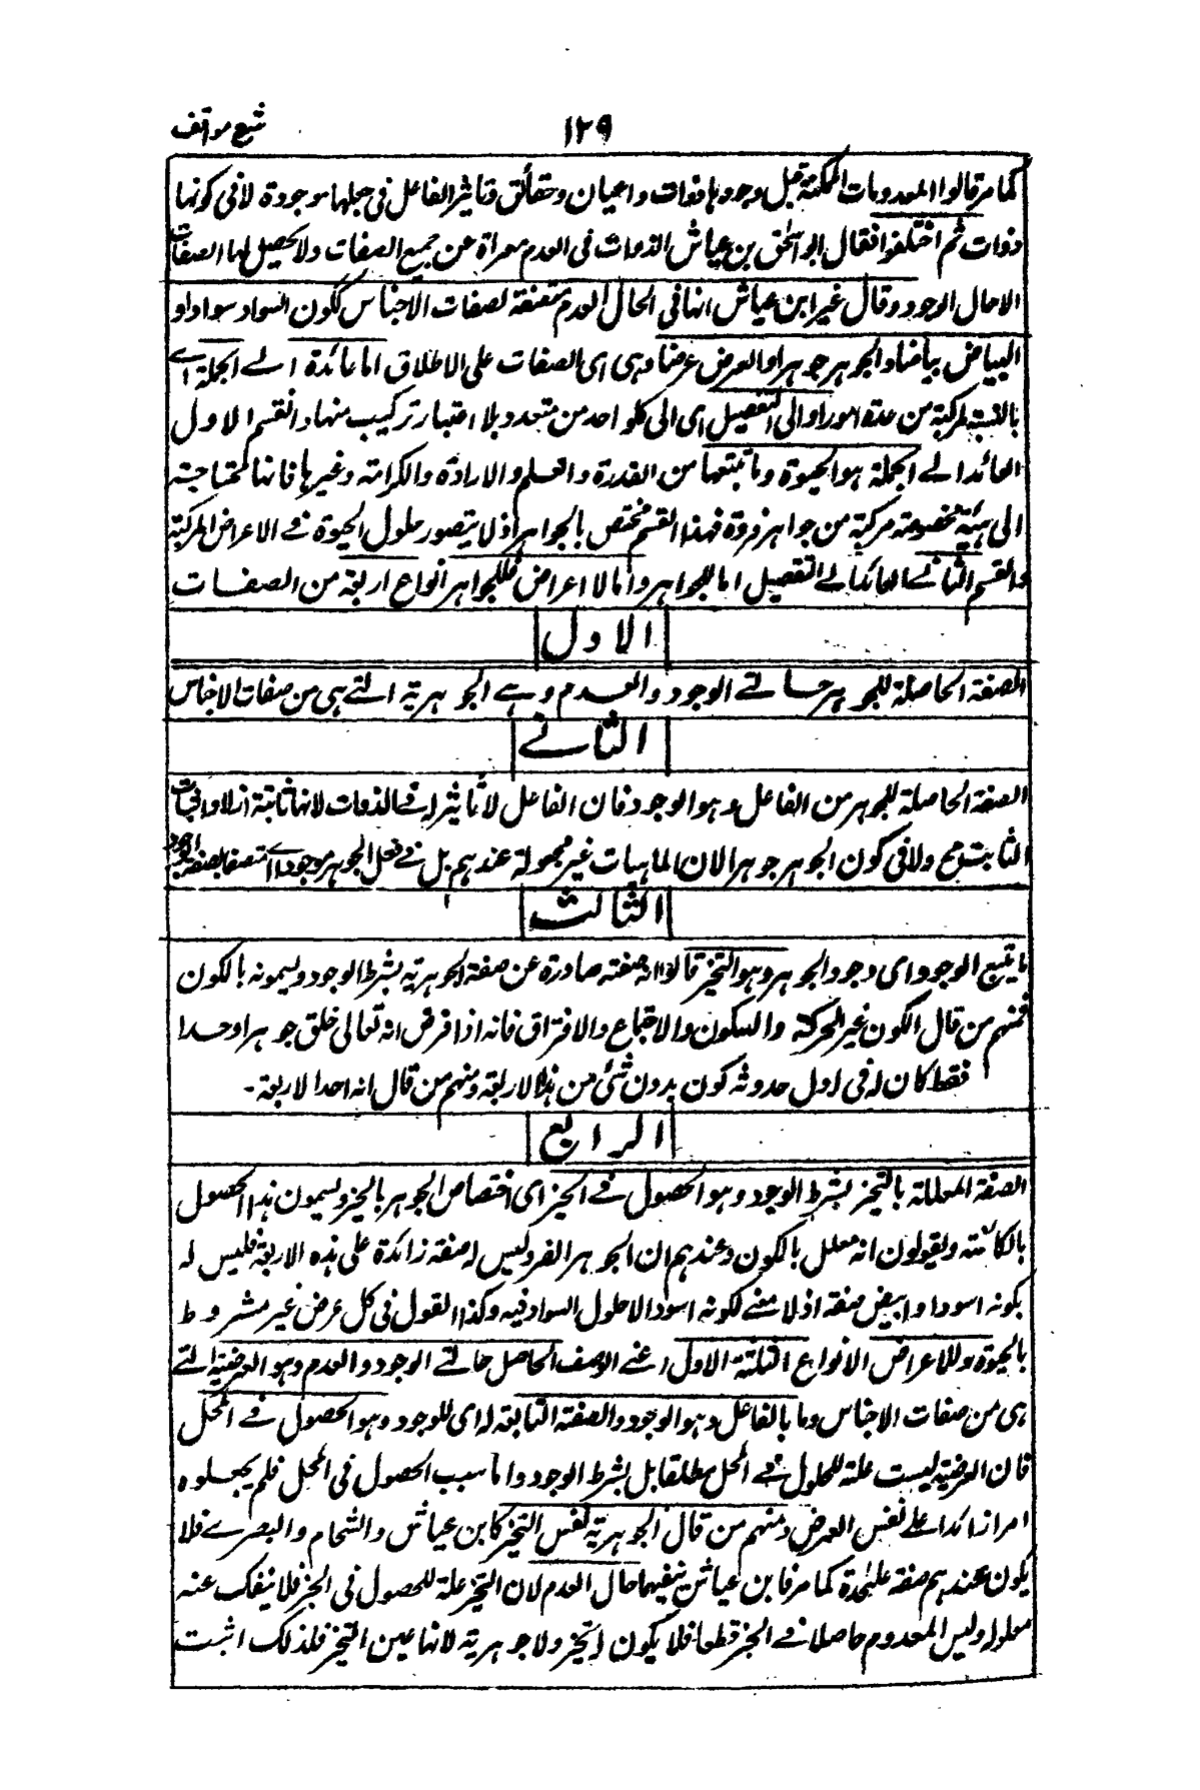 شرح مواقف
١٢٩
كما مر قالوا المعدومات الممكنة قبل وجودها ذوات واعيان وحقائق وتاثير الفاعل فى جعلها موجودة لا فى كونها
ذوات ثم اختلفوا فقال ابو اسحق بن عياش الذوات فى العدم معراة عن جميع الصفات ولا يحصل لها الصفات
الا حال الوجود وقال غير ابن عياش انها فى الحال العدم متصفة لصفات الاجناس ككون السواد سوادا و
البياض بياضا والجوهر جوهرا والعرض عرضا وهى اى الصفات على الاطلاق اما عائدة الے الجملة اے
مركبة من عدة امور او الى التفصيل اى الى كل واحد من متعدد بلا اعتبار تركيب منها والقسم الاول
العائد الے الجملة هو الحيوة وما يتبعها من القدرة والعلم والارادة والكراهة وغيرها فانها محتاجة
الى هيئة مخصوصة مركبة من جواهر فردة فهذا القسم مختص بالجواهر اذ لا يتصور حلول الحيوة فے الاعراض المركبة
والقسم الثانے العائد الے التفصيل اما للجواهر واما لاعراض فللجواهر انواع اربعة من الصفات
الاول
الصفة الحاصلة للجوهر حالتے الوجود والعدم وهے الجوهرية التے هى من صفات الاجناس
الثانے
الصفة الحاصلة للجوهر من الفاعل وهو الوجود فان الفاعل لا تاثير له فے الذوات لانها ثابتة ازلا واثبات
الثابت مح ولا فى كون الجوهر جوهرا لان الماهيات غير مجعولة عندهم بل فے جعل الجوهر موجودا اے متصفا بصفة الوجود
الثالث
ما يتبع الوجود اى وجود الجوهر وهو التحيز قالوا انه صفة صادرة عن صفة الجوهرية بشرط الوجود ويسمونه بالكون
فمنهم من قال الكون غير الحركة والسكون والاجتماع والافتراق فانه اذا فرض انه تعالى خلق جوهرا واحدا
فقط كان له فى اول حدوثه كون بدون شئ من هذه الاربعة ومنهم من قال انه احد الاربعة۔
الرابع
الصفة المعللة بالتحيز بشرط الوجود وهو الحصول فے الحيز اى اختصاص الجوهر بالحيز ويسمون هذا الحصول
بالكائنة ويقولون انه معلل بالكون وعندهم ان الجوهر الفرد ليس له صفة زائدة على هذه الاربعة فليس له
بكونه اسود او ابيض صفة اذ لا معنے لكونه اسود الا حلول السواد فيه وكذا القول فى كل عرض غير مشروط
بالحيوة وللاعراض الانواع الثلثة الاول اعنے الوصف الحاصل حالتے الوجود والعدم وهو العرضية التے
هى من صفات الاجناس وما بالفاعل وهو الوجود والصفة التابعة له اى للوجود وهو الحصول فے المحل
فان العرضية ليست علة للحلول فے المحل مطلقا بل بشرط الوجود واما سبب الحصول فى المحل فلم يجعلوه
امرا زائدا علے نفس العرض ومنهم من قال الجوهرية نفس التحيز كابن عياش والشحام والبصرے فلا
يكون عندهم صفة علىحدة كما مر فابن عياش ينفيهما حال العدم لان التحيز علة للحصول فى الحيز فلا ينفك عنه
معلوله وليس المعدوم حاصلا فے الحيز قطعا فلا يكون له تحيز ولا جوهرية لانها عين التحيز فلذلك اثبت